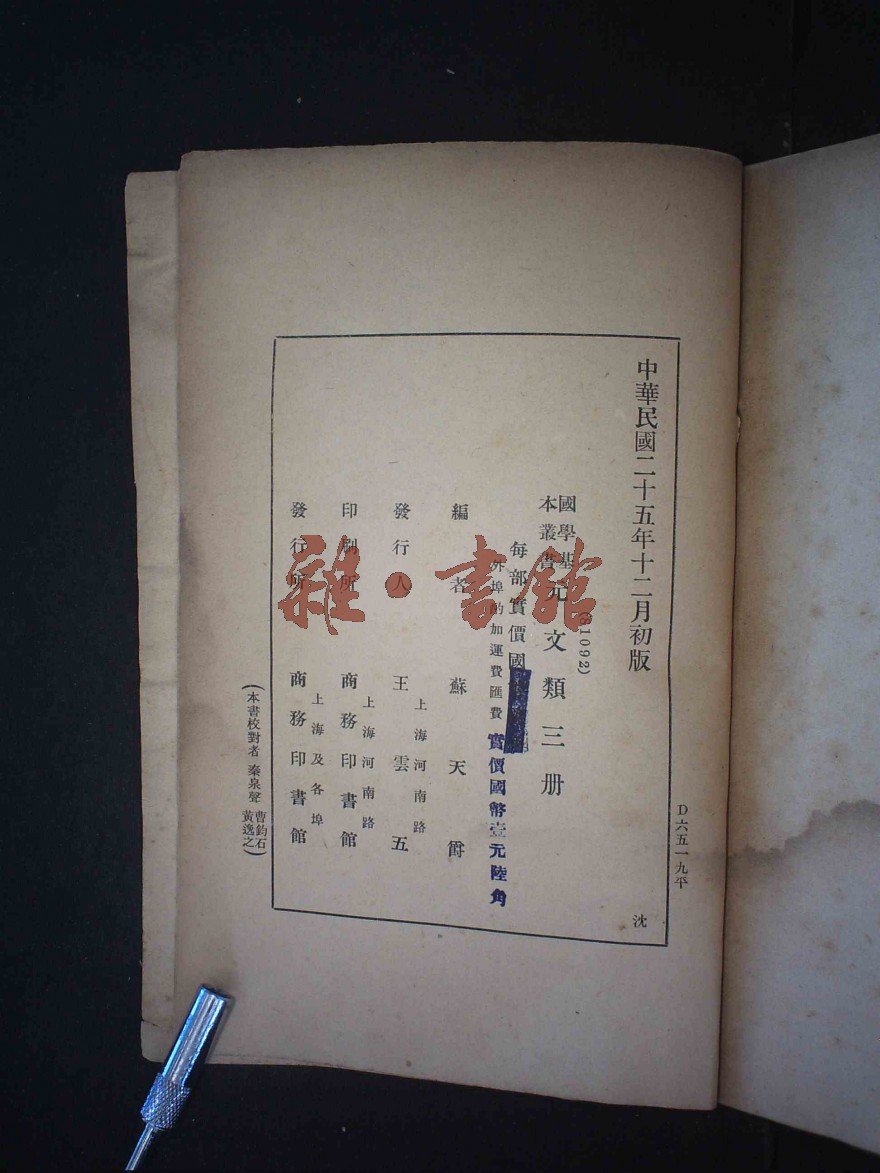 中華民國二十五年十二月初版
(81092)
國學基
本叢書
元文類三册
每部實價國
外埠酌加運費匯費
實價國幣壹元陸角
編者 蘇天爵
發行人 王雲五
上海河南路
印刷所 商務印書館
上海河南路
發行所 商務印書館
上海及各埠
(本書校對者 秦泉聲 曹鈞石 黃逸之)
D六五一九平
沈
雜·書館